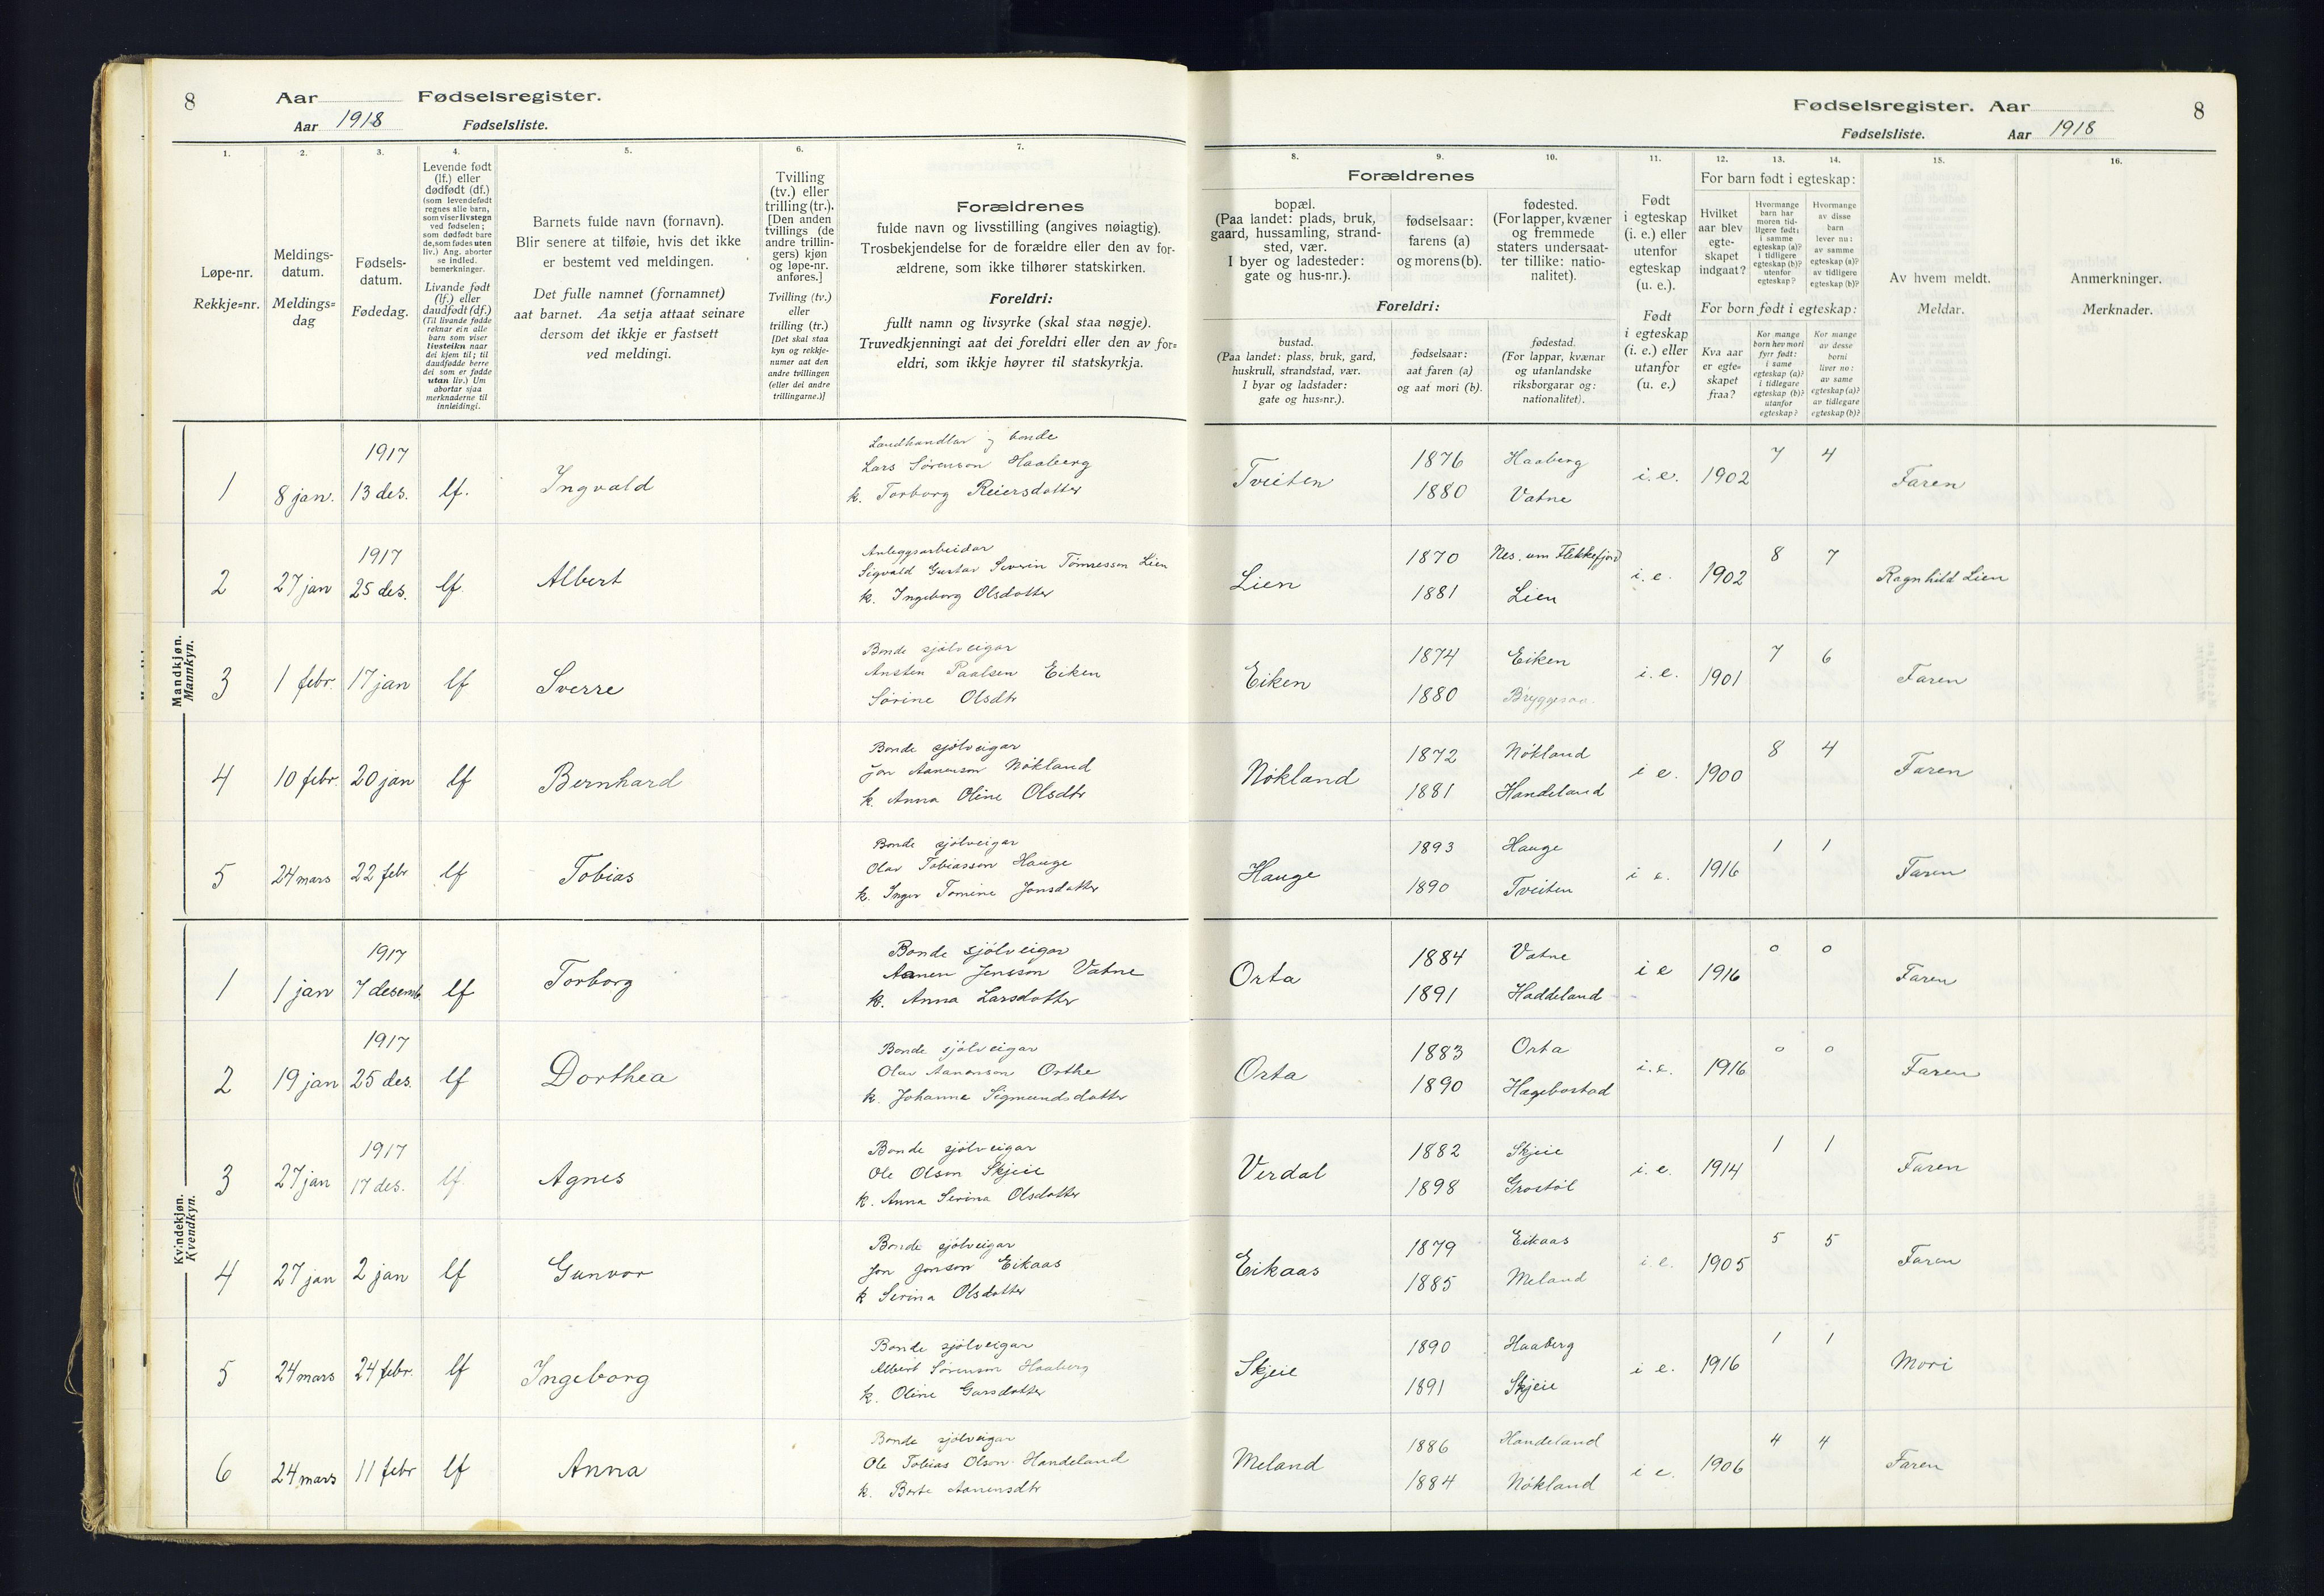 8
Aar
Fødselsregister.
Aar 1918
Fødselsliste.
1.
2.
3.
4.
5.
6.
7.
Løpe-nr.
Rekkje=nr.
Meldings-
datum.
Meldings=
dag
Fødsels-
datum.
Fødedag.
Levende født
(lf.) eller
dødfødt (df.)
(som levendefødt
regnes alle barn,
som viser livstegn
ved fødselen;
som dødfødt bare
de, som fødes uten
liv.) Ang. aborter
se indled.
bemerkninger.
Livande født
(lf.) eller
daudfødt (df.)
(Til livande fødde
reknar ein alle
barn som viser
livsteikn naar
dei kjem til; til
daudfødde berre
dei som er fødde
utan liv.) Um
abortar sjaa
merknaderne til
innleidingi.
Barnets fulde navn (fornavn).
Blir senere at tilføie, hvis det ikke
er bestemt ved meldingen.
Det fulle namnet (fornamnet)
aat barnet. Aa setja attaat seinare
dersom det ikkje er fastsett
ved meldingi.
Tvilling
(tv.) eller
trilling (tr.).
[Den anden
tvillings (de
andre trillin-
gers) kjøn
og løpe-nr.
anføres.]
Tvilling (tv.)
eller
trilling (tr.)
[Det skal staa
kyn og rekkje-
numer aat den
andre tvillingen
(eller dei andre
trillingarne.)]
Forældrenes
fulde navn og livsstilling (angives nøiagtig).
Trosbekjendelse for de forældre eller den av for-
ældrene, som ikke tilhører statskirken.
Foreldri:
fullt namn og livsyrke (skal staa nøgje).
Truvedkjenningi aat dei foreldri eller den av for=
eldri, som ikkje høyrer til statskyrkja.
Mandkjøn.
Mannkyn.
1917
1 8 jan. 13 des. lf. Ingvald
Landhandlar og bonde
Lars Sørenson Haaberg
k. Torborg Reiersdotter
1917
2 27 jan 25 des. lf. Albert
Anleggsarbeidar
Sigvald Gustav Severin Tønnesson Lien
k. Ingeborg Olsdotter
3 1 febr. 17 jan lf Sverre
Bonde sjølveigar
Ansten Paalsen Eiken
Sørine Olsdtr
4 10 febr. 20 jan lf Bernhard
Bonde sjølveigar
Jon Aanenson Nökland
k. Anna Oline Olsdtr
5 24 mars 22 febr lf Tobias
Bonde sjølveigar
Olav Tobiasson Hauge
k. Inger Tomine Jonsdotter
Kvindekjøn.
Kvendkyn.
1917
1 1 jan 7 desemb lf Torborg
Bonde sjølveigar
Aanen Jensson Vatne
k. Anna Larsdotter
1917
2 19 jan 25 des. lf Dorthea
Bonde sjølveigar
Olav Aanenson Orthe
k. Johanne Sigmundsdotter
1917
3 27 jan 17 des. lf. Agnes
Bonde sjølveigar
Ole Olson Skjeie
k. Anna Serina Olsdotter
4 27 jan 2 jan lf Gunvor
Bonde sjølveigar
Jon Jonson Eikaas
k Serina Olsdotter
5 24 mars 24 febr. lf Ingeborg
Bonde sjølveigar
Albert Sørenson Haaberg
k. Oline Garsdotter
6 24 mars 11 febr lf Anna
Bonde sjølveigar
Ole Tobias Olson Handeland
k. Berte Aanensdtr
Fødselsregister. Aar
8
Fødselsliste.
Aar 1918
8.
9.
10.
11.
12.
13.
14.
15.
16.
Forældrenes
bopæl.
(Paa landet: plads, bruk,
gaard, hussamling, strand-
sted, vær.
I byer og ladesteder:
gate og hus-nr.).
fødselsaar:
farens (a)
og morens (b).
fødested.
(For lapper, kvæner
og fremmede
staters undersaat-
ter tillike: natio-
nalitet).
Foreldri:
bustad.
(Paa landet: plass, bruk, gard,
huskrull, strandstad, vær.
I byar og ladstader:
gate og hus=nr.).
fødselsaar:
aat faren (a)
og aat mori (b).
fødestad.
(For lappar, kvænar
og utanlandske
riksborgarar og:
nationalitet).
Født
i egteskap
(i. e.) eller
utenfor
egteskap
(u. e.).
Født
i egteskap
(i. e.) eller
utanfor
(u. e.)
For barn født i egteskap:
Hvilket
aar blev
egte-
skapet
indgaat?
Hvormange
barn har
moren tid-
ligere født:
i samme
egteskap (a)?
i tidligere
egteskap (b)?
utenfor
egteskap?
Hvormange
av disse
barn
lever nu:
av samme
egteskap (a)?
av tidligere
egteskap (b)?
For born født i egteskap:
Kva aar
er egte=
skapet
fraa?
Kor mange
born hev mori
fyrr født:
i same
egteskap (a)?
i tidlegare
egteskap (b)?
utanfor
egteskap?
Kor mange
av desse
borni
liver no:
av same
egteskap (a)?
av tidlegare
egteskap (b)?
Av hvem meldt.
Meldar.
Anmerkninger.
Merknader.
Tveiten 1876 Haaberg i. e. 1902 7 4 Faren
1880 Vatne
Lien 1870 Nes. um Flekkefjord i. e. 1902 8 7 Ragnhild Lien
1881 Lien
Eiken 1874 Eiken i. e. 1901 7 6 Faren
1880 Bryggesaa
Nökland 1872 Nökland i e. 1900 8 4 Faren
1881 Handeland
Hauge 1893 Hauge i e. 1916 1 1 Faren
1890 Tveiten
Orta 1884 Vatne i e 1916 0 0 Faren
1891 Haddeland
Orta 1883 Orta i. e. 1916 0 0 Faren
1890 Hægebostad
Verdal 1882 Skjeie i. e. 1914 1 1 Faren
1898 Grostöl
Eikaas 1879 Eikaas i. e. 1905 5 5 Faren
1885 Meland
Skjeie 1890 Haaberg i e. 1916 1 1 Mori
1891 Skjeie
Meland 1886 Handeland i e. 1906 4 4 Faren
1884 Nökland